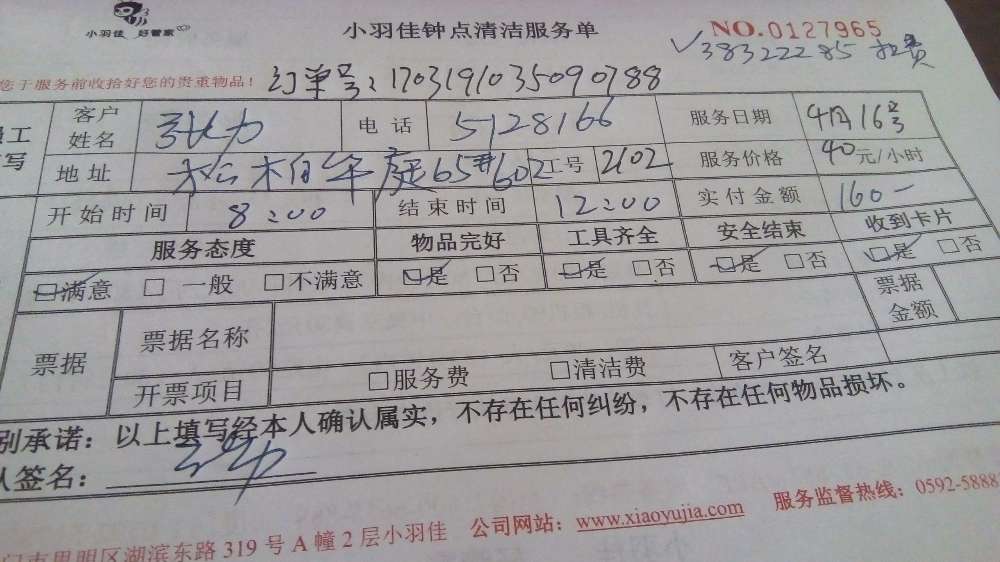 小羽佳 好管家
小羽佳钟点清洁服务单
NO.0127965
✓38322285
您于服务前收拾好您的贵重物品！
订单号：1703191035090788
客户姓名 张力 电话 5128166 服务日期 4月16号
地址 松柏华庭65#602 工号 2102 服务价格 40元/小时
开始时间 8:00 结束时间 12:00 实付金额 160-
服务态度 物品完好 工具齐全 安全结束 收到卡片
☑满意 □ 一般 □不满意 ☑是 □否 ☑是 □否 ☑是 □否 ☑是 □否
票据 票据名称 票据金额
开票项目 □服务费 □清洁费 客户签名
别承诺：以上填写经本人确认属实，不存在任何纠纷，不存在任何物品损坏。
人签名：
门市思明区湖滨东路 319 号 A 幢 2 层小羽佳 公司网站：www.xiaoyujia.com 服务监督热线：0592-5888